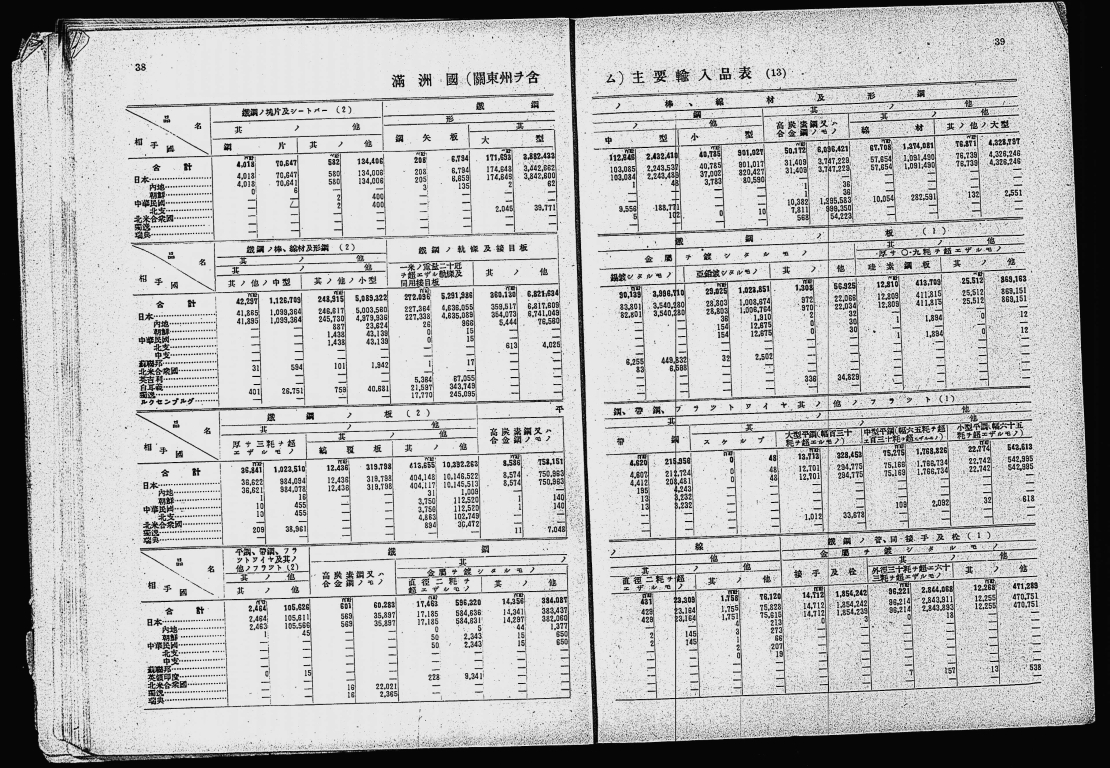 38
39
滿洲國(關東州ヲ含
ム)主要輸入品表 (13)
品名
相手國
鐵鋼ノ塊片及シートバー (2)
鐵鋼
其ノ他
形
鋼片 其ノ他
鋼矢板
其
大型
合計 4,018 70,647 582 134,406 208 6,794 171,693 3,882,433
日本 4,018 70,647 580 134,006 208 6,794 174,648 3,842,662
內地 4,018 70,641 580 134,006 205 6,659 174,646 3,842,600
朝鮮 0 6 — — 3 135 2 62
中華民國 — — 2 400
北支 — — 2 400
北米合衆國 2,045 39,771
獨逸
瑞典
ノ棒、線材及形鋼
鋼
其ノ他
中型 小型
高炭素鋼又ハ合金鋼ノモノ
其ノ他
線材 其ノ他ノ大型
112,649 2,432,410 40,785 901,027 50,172 6,096,421 67,708 1,374,081 76,871 4,328,797
103,085 2,243,535 40,785 901,017 31,409 3,747,229 57,654 1,091,490 76,739 4,326,246
103,084 2,243,489 37,002 820,427 31,409 3,747,229 57,654 1,091,490 76,739 4,326,246
1 48 3,783 80,590
1 36
1 36
9,556 188,773 10,382 1,295,583 10,054 282,591 132 2,551
5 102 0 10 7,811 999,350
568 54,223
品名
相手國
鐵鋼ノ棒、線材及形鋼 (2)
鐵鋼ノ軌條及接目板
其ノ他
其ノ他
其ノ他ノ中型 其ノ他ノ小型
一米ノ重量二十瓩ヲ超エザル軌條及同用接目板
其ノ他
合計 42,297 1,126,709 248,915 5,089,322 272,036 5,291,986 360,130 6,821,634
日本 41,865 1,099,364 246,617 5,003,560 227,364 4,636,055 359,517 6,817,609
內地 41,895 1,099,364 245,730 4,979,936 227,338 4,635,089 354,073 6,741,049
朝鮮 887 23,624 26 966 5,444 76,560
中華民國 1,438 43,139 0 15
北支 1,438 43,139 0 15
中支 613 4,025
蘇聯邦
北米合衆國 31 594 101 1,942 1 17
英吉利
白耳義 5,364 67,055
獨逸 401 26,751 759 40,681 21,597 343,749
ルクセンブルグ 17,770 245,095
鐵鋼ノ
板 (1)
金屬ヲ鍍シタルモノ
其ノ他
厚サ〇・九粍ヲ超エザルモノ
錫鍍シタルモノ 亞鉛鍍シタルモノ 其ノ他 硅素鋼板 其ノ他
90,139 3,996,710 29,025 1,023,851 1,308 56,925 12,810 413,709 25,512 869,163
83,801 3,540,280 28,803 1,008,674 972 22,066 12,809 411,815 25,512 869,151
82,801 3,540,280 28,803 1,006,764 970 22,034 12,809 411,815 25,512 869,151
36 1,910 2 32
154 12,675 0 30 1 1,894 0 12
154 12,675 0 30 1 1,894 0 12
6,255 449,832 32 2,502
83 6,598
336 34,829
品名
相手國
鐵鋼ノ板 (2)
平
其ノ他
其ノ他
厚サ三粍ヲ超エザルモノ
縞覆板
其ノ他
高炭素鋼又ハ合金鋼ノモノ
合計 36,841 1,023,510 12,436 319,798 413,655 10,392,263 8,586 758,151
日本 36,622 984,094 12,436 319,798 404,148 10,146,522 8,574 750,963
內地 36,621 984,078 12,436 319,798 404,117 10,145,513 8,574 750,963
朝鮮 1 16 31 1,009
中華民國 10 455 3,750 112,520 1 140
北支 10 455 3,750 112,520 1 140
北米合衆國 4,863 102,749
獨逸 209 38,961 894 30,472
瑞典 11 7,048
鋼、帶鋼、フラットワイヤ其ノ他ノフラット(1)
其ノ他
帶鋼
スケルプ
其ノ他
大型平鋼(幅百三十粍ヲ超エルモノ)
中型平鋼(幅六五粍ヲ超エ百三十粍ヲ超エザルモノ)
小型平鋼(幅六十五粍ヲ超エザルモノ)
4,620 215,956 0 48 13,713 328,453 75,275 1,768,826 22,774 543,613
4,607 212,724 0 48 12,701 294,775 75,166 1,766,734 22,742 542,995
4,412 208,481 0 48 12,701 294,775 75,169 1,766,734 22,742 542,995
195 4,243
13 3,232
13 3,232
109 2,092 32 618
1,012 33,678
品名
相手國
平鋼、帶鋼、フラットワイヤ及其ノ他ノフラット (2)
鐵鋼
ノ
其ノ他
高炭素鋼又ハ合金鋼ノモノ
其
金屬ヲ鍍シタルモノ
直徑二粍ヲ超エザルモノ
其ノ他
合計 2,464 105,626 601 60,283 17,463 596,320 14,356 384,087
日本 2,464 105,611 569 35,897 17,185 584,636 14,341 383,437
內地 2,463 105,566 569 35,897 17,185 584,631 14,297 382,060
朝鮮 1 45 0 5 44 1,377
中華民國 50 2,343 15 650
北支 50 2,343 15 650
中支
蘇聯邦
英領印度 0 15
北米合衆國 228 9,341
獨逸 16 22,021
瑞典 16 2,365
線
ノ他
直徑二粍ヲ超エザルモノ
其ノ他
鐵鋼ノ管、同接手及栓 (1)
金屬ヲ鍍シタルモノ
接手及栓
其ノ
外徑三十粍ヲ超エ六十三粍ヲ超エザルモノ
其ノ他
431 23,309 1,758 76,120 14,712 1,854,242 96,221 2,844,068 12,268 471,289
429 23,164 1,755 75,828 14,712 1,854,242 96,214 2,843,911 12,255 470,751
429 23,164 1,751 75,615 14,712 1,854,239 96,214 2,843,893 12,255 470,751
4 213 0 3 0 18
2 145 3 273
2 145 1 66
2 207
0 19
7 157 13 538